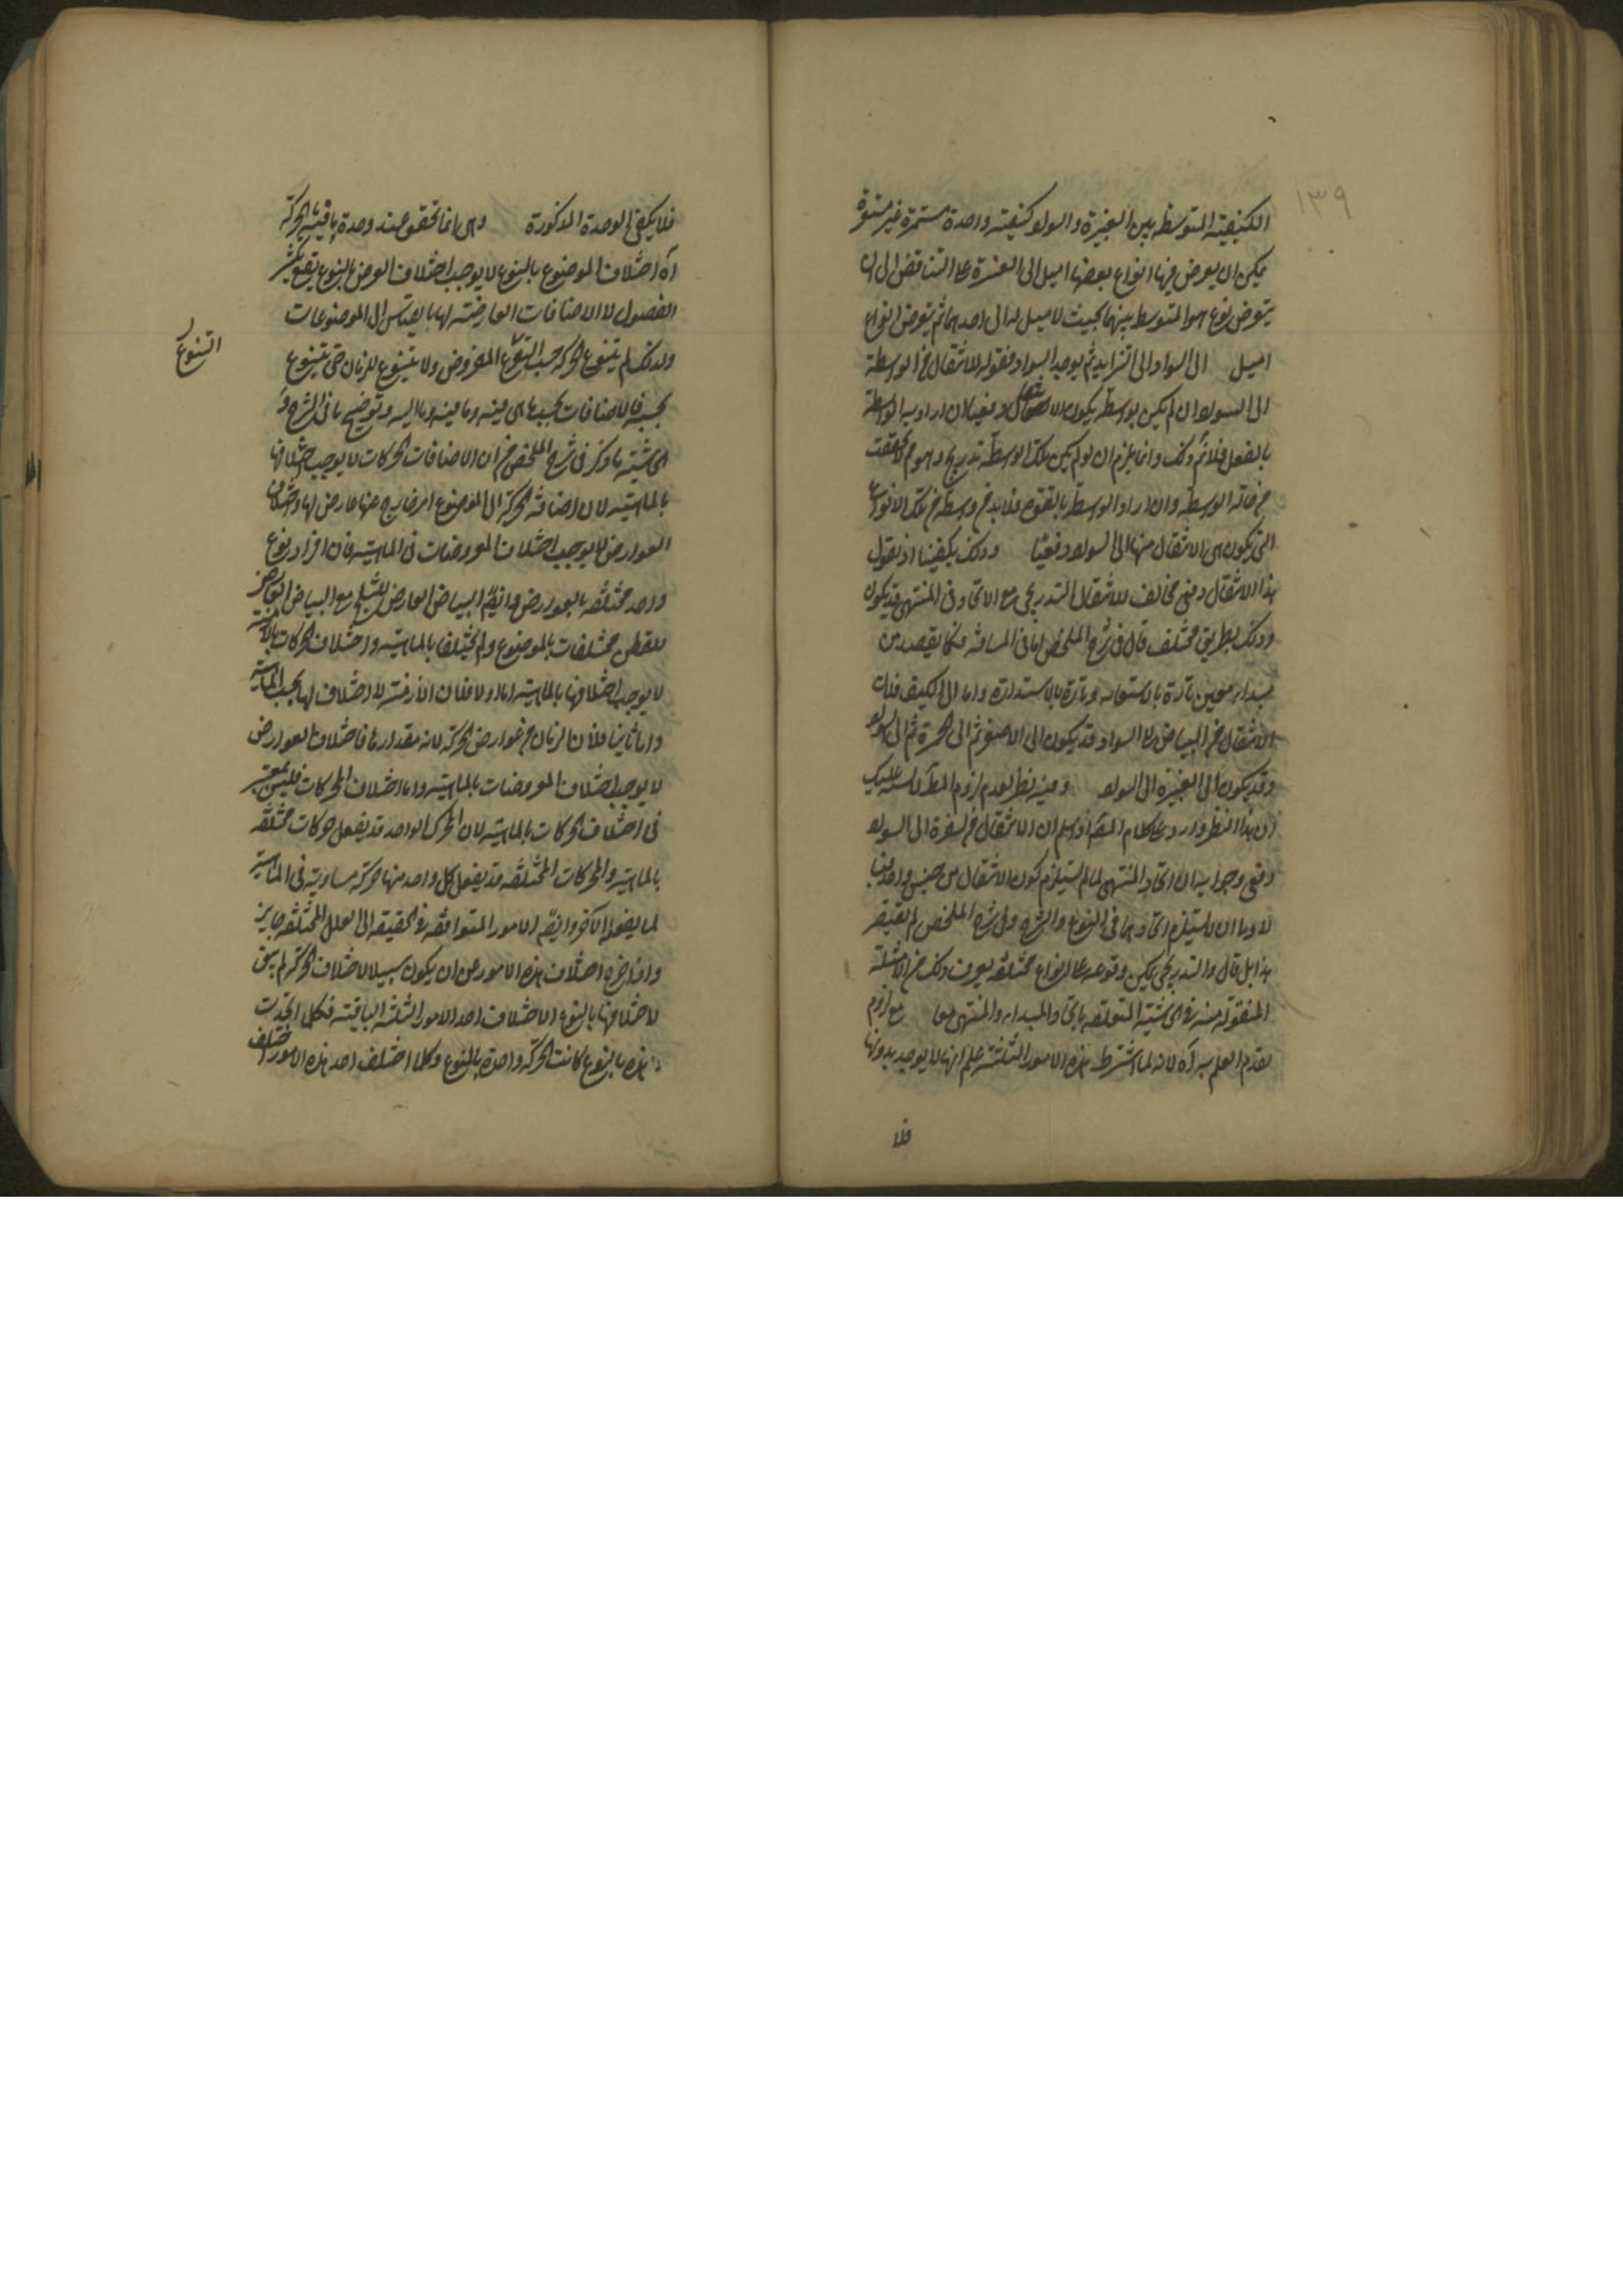 ١٣٩
الكيفية المتوسطة بين الغبرة والسواد كيفية واحدة مستمرة غير متنوعة
يمكن ان يعرض فيها انواع بعضها اميل الى الغبرة على التناقض الى ان
يتعرض نوع هو المتوسط بينهما بحيث لا ميل له الى احدهما ثم يتعرض انواع
اميل الى السواد الى التزايد ثم يوجد السواد فقوله الانتقال من الوسطة
الى السواد ان لم يكن بواسطة يكون الانتقال دفعيا ان اراد به الواسطة
بالفعل فلا ثم ذلك وانما يلزم ان لو لم يكن تلك الواسطة تدريج وهو مم لو تحققت
من خاته الوسطة وان اراد الوسطة بالقوة فلا بد من وسطة من تلك الانواع
التي يكون هي الانتقال منها الى السواد دفعيا وذلك يكفينا اذ نقول
هذا الانتقال دفعي مخالف للانتقال التدريجي مع الاتحاد في المنتهى قد يكون
وذلك بطريق مختلف قال في شرح الملخص اما في المسافة فكما يقصد من
مبداء معين تارة بالاستقامة وتارة بالاستدارة واما في الكيف فلان
الانتقال من البياض الى السواد قد يكون الى الاصفر ثم الى الحمرة ثم الى السواد
وقد يكون الى الغبرة الى السواد وفيه نظر لعدم لزوم المط لا يلتبس عليك
ان هذا النظر وارد على كلام المص اذ سلم ان الانتقال من الغبرة الى السواد
دفعي وجوابه ان اتحاد المنتهى لما لم يستلزم كون الانتقال من جنس واحد فبا
لاولى ان لا يستلزم اتحادهما في النوع والشرح وفي شرح الملخص لم يقتصر
هذا بل قال والتدريجي يمكن وقوعه على انواع مختلفة يعرف ذلك من الامثلة
المنقولة منه في الحاشية المتعلقة باتحاد المبداء والمنتهى معا مع لزوم
تقدم العلم به آه لانه لما اشترط هذه الامور الثلثة علم انها لا يوجد بدونها
فلا
فلا يكفي الوحدة المذكورة وهي انما تحقق عند وحدة باقية الحركة
آه اختلاف الموضوع بالنوع لا يوجب اختلاف العرض بالنوع
الفصول لا الاضافات العارضة لها بالقياس الى الموضوعات
ولذلك لم يتنوع الحركة حسب التنوع المفروض ولا يتنوع الزمان حتى يتنوع
التنوع
بحسبه فالاضافات بحسب ما هي فيه وما منه وما اليه وتوضيح ما في الشرح و
الحاشية ما ذكر في شرح الملخص من ان الاضافات الحركات لا يوجب اختلافها
بالماهية لان اضافة الحركة الى الموضوع امر خارج عنها عارض لها واختلاف
العوارض لا يوجب اختلاف المعروضات في الماهية فان افراد نوع
واحد مختلفة بالعوارض وايضا البياض العارض للثلج مع البياض العارض
للقطن مختلفات بالموضوع ولم يختلفا بالماهية واختلاف الحركات بالازمنة
لا يوجب اختلافها بالماهية اما اولا فلان الازمنة لا اختلاف لها بحسب الماهية
واما ثانيا فلان الزمان من عوارض الحركة لانه مقدارها فاختلاف العوارض
لا يوجب اختلاف المعروضات بالماهية واما اختلاف المحركات فليس بمعتبر
في اختلاف الحركات بالماهية لان المحرك الواحد قد يفعل حركات مختلفة
بالماهية والمحركات المختلفة قد يفعل كل واحد منها حركة مساوية في الماهية
لما يفعله الآخر وايضا الامور المتوافقة في الحقيقة الى العلل المختلفة جايز
واذا خرج اختلاف هذه الامور عن ان يكون سببا لاختلاف الحركة لم يبق
لاختلافها بالنوع الا اختلاف احد الامور الثلثة الباقية فكلما اتحدت
هذه بالنوع كانت الحركة واحدة بالنوع وكلما اختلف احد هذه الامور اختلف